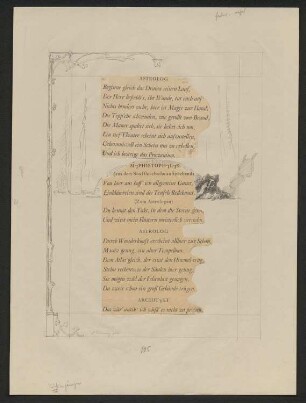 ASTROLOG
Beginne gleich das Drama seinen Lauf,
Der Herr befiehlt's, ihr Wände, tut euch auf!
Nichts hindert mehr, hier ist Magie zur Hand:
Die Teppiche schwinden, wie gerollt vom Brand;
Die Mauer spaltet sich, sie kehrt sich um,
Ein tief Theater scheint sich aufzustellen,
Geheimnisvoll ein Schein uns zu erhellen,
Und ich besteige das Proszenium.
MEPHISTOPHELES
(aus dem Souffleurloche auftauchend)
Von hier aus hoff' ich allgemeine Gunst,
Einbläsereien sind des Teufels Redekunst.
(Zum Astrologen)
Du kennst den Takt, in dem die Sterne gehn,
Und wirst mein Flüstern meisterlich verstehn.
ASTROLOG
Durch Wunderkraft erscheint allhier zur Schau,
Massiv genug, ein alter Tempelbau.
Dem Atlas gleich, der einst den Himmel trug,
Stehn reihenweis der Säulen hier genug;
Sie mögen wohl der Felsenlast genügen,
Da zweie schon ein groß Gebäude trügen.
ARCHITEKT
Das wär' antik! ich wüßt' es nicht zu preisen,